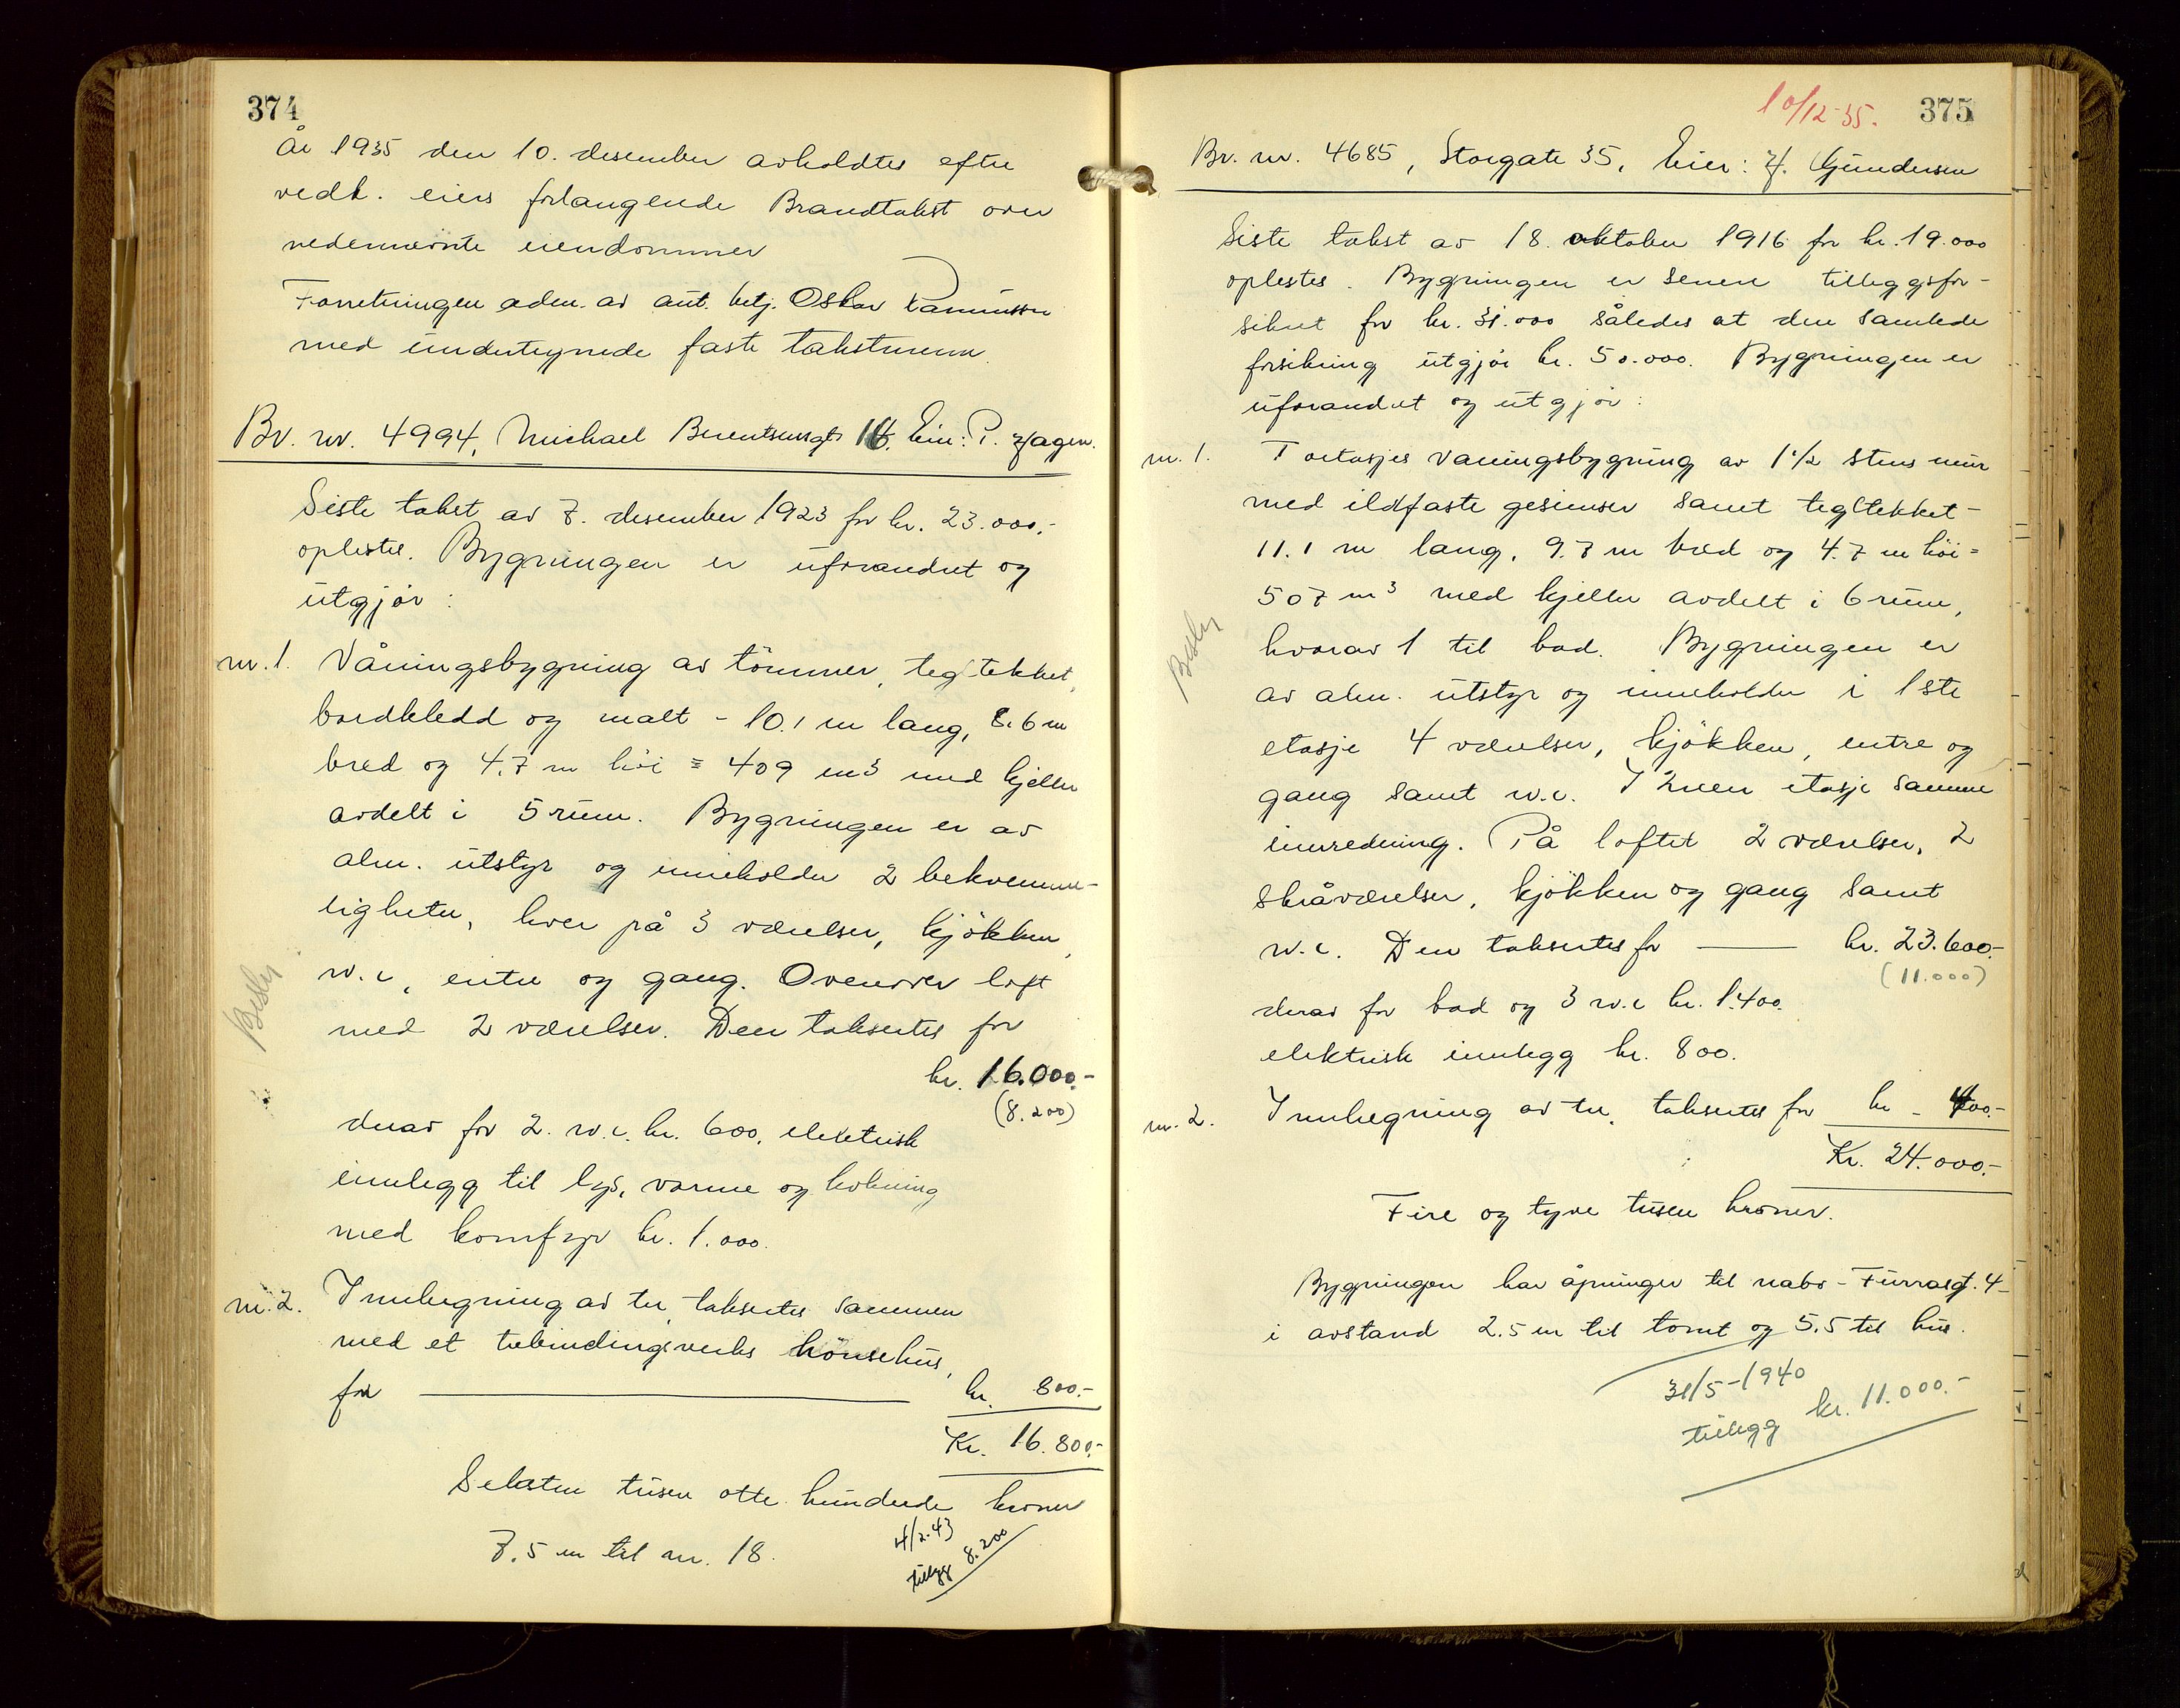 374
År 1935 den 10. desember avholdtes efter
vedk. eiers forlangende Brandtakst over
nedennevnte eiendommer
Forretningen adm. av aut. betj. Oskar Rasmussen
med undertegnede faste takstmenn.
Br. nr. 4994, Michael Berentsensgt 16. Eier: P. Hagen.
Siste takst av 7. desember 1923 for kr. 23.000,-
oplestes. Bygningen er uforandret og
utgjör:
nr. 1. Våningsbygning av tömmer, tegltekket,
bordkledd og malt - 10.1 m lang, 8.6 m
bred og 4.7 m höi = 409 m3 med kjeller
avdelt i 5 rum. Bygningen er av
alm. utstyr og inneholder 2 bekvemme-
ligheter, hver på 3 værelser, kjökken,
w.c, entre og gang. Ovenover loft
med 2 værelser. Den taksertes for
kr. 16.000.-
(8.200)
derav for 2. w.c. kr. 600, elektrisk
innlegg til lys, varme og kokning
med komfyr kr. 1.000.
nr. 2. Innhegning av tre, taksertes sammen
med et trebindingsverks hönsehus,
for kr. 800.-
Kr. 16.800.-
Seksten tusen otte hundrede kroner
7.5 m til nr. 18.
4/2-43
tillegg 8.200
10/12-35.
375
Br. nr. 4685, Storgate 35, Eier: H. Gjundersen
Siste takst av 18. oktober 1916 for kr. 19.000
oplestes. Bygningen er senere tilleggsfor-
sikret for kr. 31.000 således at den samlede
forsikring utgjör kr. 50.000. Bygningen er
uforandret og utgjör:
nr. 1. Toetasjes våningsbygning av 1 1/2 stens mur
med ildfaste gesimser samt tegltekket -
11.1 m lang, 9.7 m bred og 4.7 m höi =
507 m3 med kjeller avdelt i 6 rum,
hvorav 1 til bad. Bygningen er
av alm. utstyr og inneholder i 1ste
etasje 4 værelser, kjökken, entre og
gang samt w.c. I 2nen etasje samme
innredning. På loftet 2 værelser, 2
skråværelser, kjökken og gang samt
w.c. Den taksertes for kr. 23.600.-
(11.000)
derav for bad og 3 w.c kr. 1.400.
elektrisk innlegg kr. 800.
nr. 2. Innhegning av tre, taksertes for kr - 400.-
Kr. 24.000.-
Fire og tyve tusen kroner.
Bygningen har åpninger til nabo - Furrasgt. 4 -
i avstand 2.5 m til tomt og 5.5 til hus.
31/5-1940
tillegg kr. 11.000.-